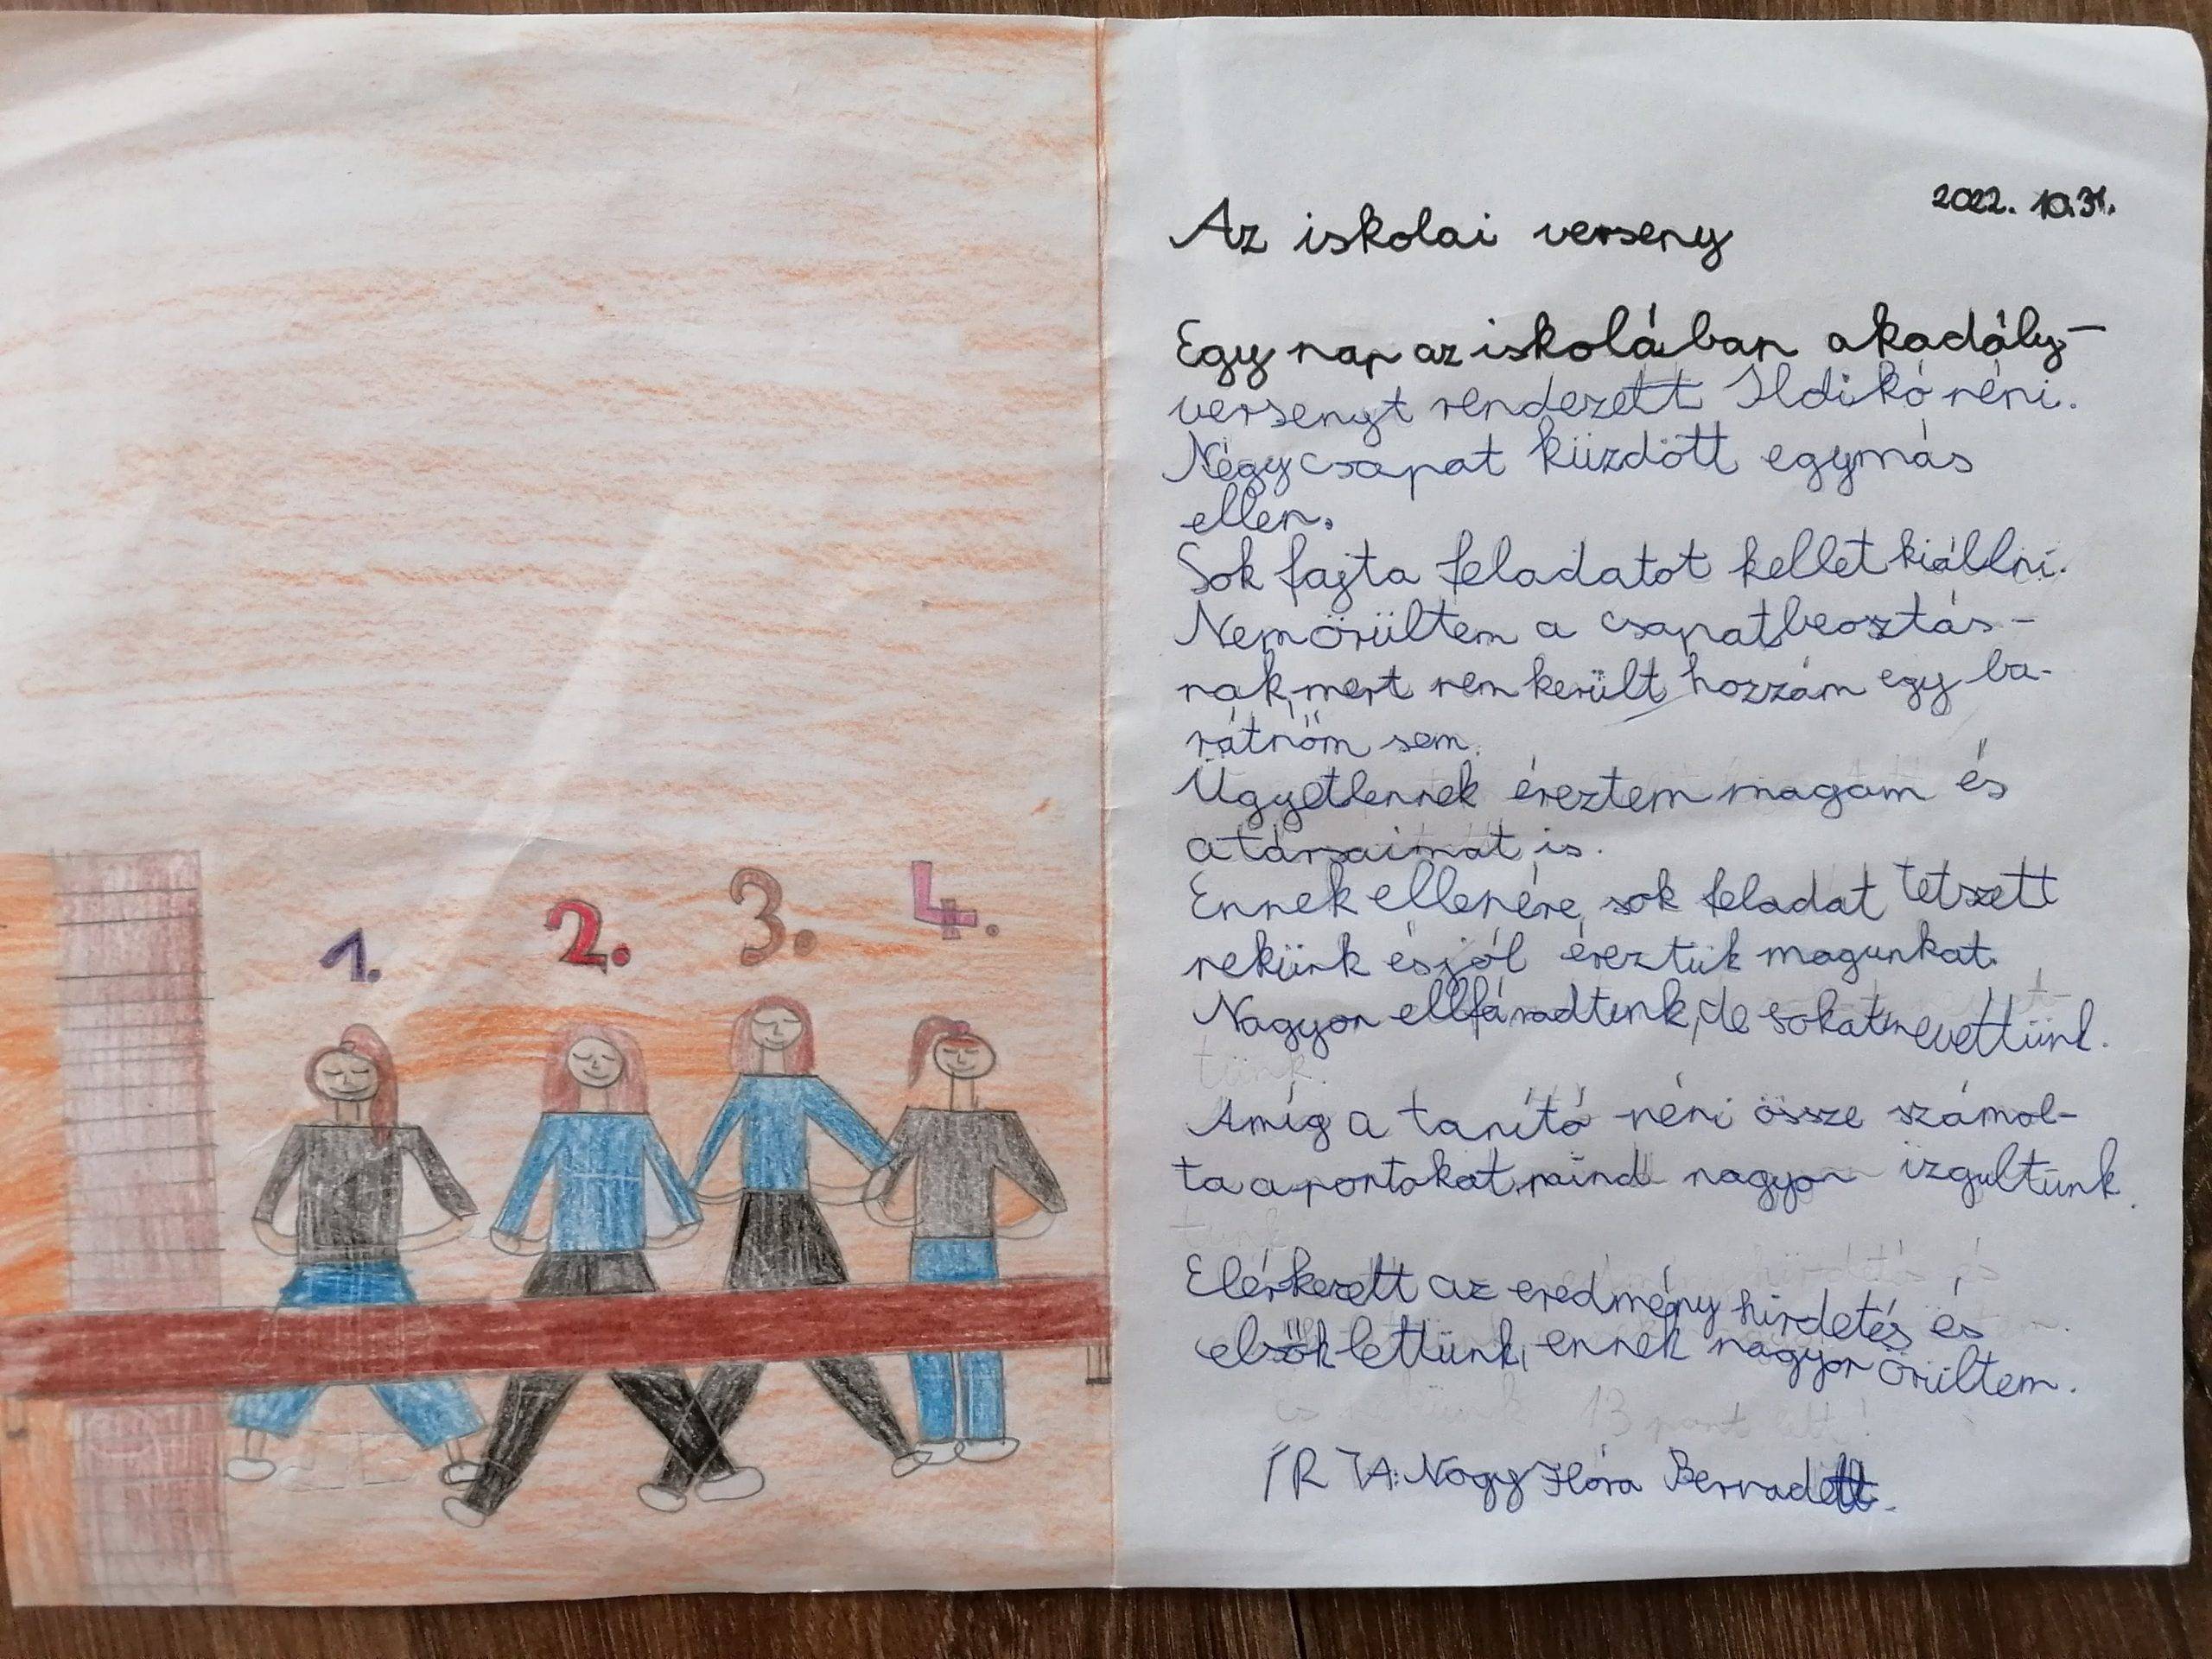 1.
2.
3.
4.
2022. 10.31.
Az iskolai verseny
Egy nap az iskolában akadály-
versenyt rendezett Ildikó néni.
Négy csapat küzdött egymás
ellen.
Sok fajta feladatot kellet kiállni.
Nem örültem a csapatbeosztás-
nak, mert nem került hozzám egy ba-
rátnőm sem.
Ügyetlennek éreztem magam és
a társaimat is.
Ennek ellenére sok feladat tetszett
nekünk és jól éreztük magunkat.
Nagyon ellfáradtunk, de sokat nevettünk.
tünk.
Amíg a tanító néni össze számol-
ta a pontokat, mind nagyon izgultunk.
tunk
Elérkezett az eredmény hirdetés és
elsők lettünk, ennek nagyon örültem.
13 pont lett!
ÍRTA: Nagy Flóra Bernadett.